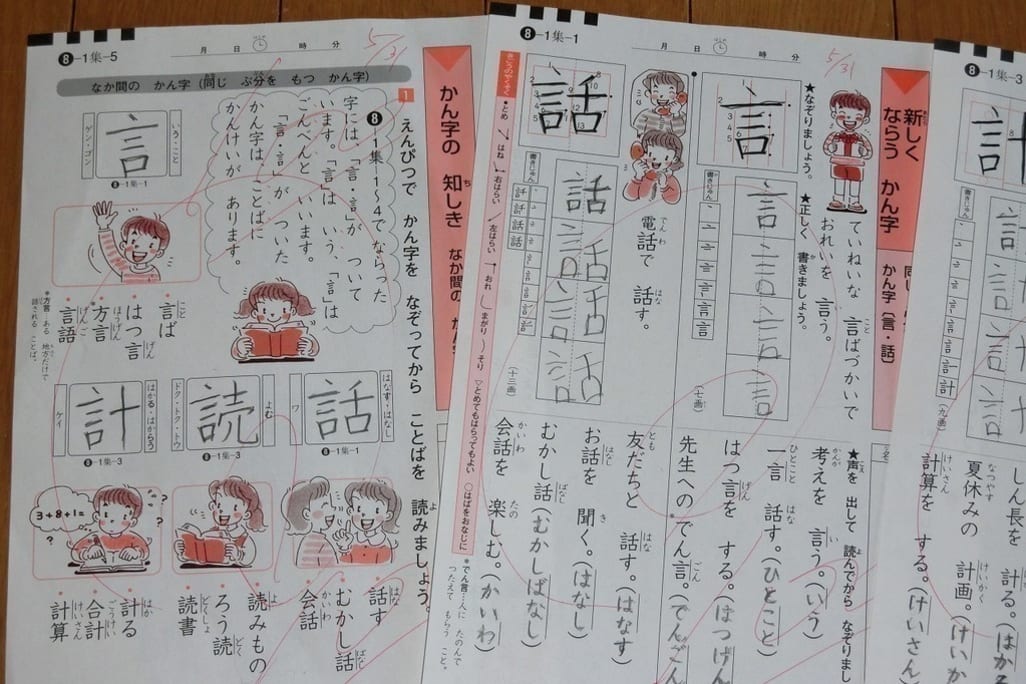 8-1集-5
月 日 時 分
5/31
なか間の かん字(同じ ぶ分を もつ かん字)
かん字の 知しき
なか間の かん字
1
えんぴつで かん字を なぞってから ことばを 読みましょう。
8-1集-1~4で ならった
字には、「言・言」が ついて
います。「言」は いう、「言」は
ごんべんと いいます。
「言・言」が ついた
かん字は、ことばに
かんけいが あります。
言
いう・こと
ゲン・ゴン
8-1集-1
言ば
はつ言
*方言
言語
*方言…ある 地方だけで
話される ことば。
話
はなす・はなし
ワ
8-1集-1
読
よむ
ドク・トク・トウ
8-1集-3
計
はかる・はからう
ケイ
8-1集-3
3+8+1=
?
?
?
話す
むかし話
会話
読みもの
ろう読
読書
計る
合計
計算
8-1集-1
月 日 時 分
5/31
新しく
ならう かん字
同じ
かん字〔言・話〕
★なぞりましょう。
★正しく 書きましょう。
言
書きじゅん
(七画)
言
言
言
言
ていねいな 言ばづかいで
おれいを 言う。
話
書きじゅん
(十三画)
話
話
話
話
電話で 話す。
きごうのやくそく
●とめ
はね
右はらい
左はらい
おれ
まがり
そり
▽とめてもはらってもよい
○はばをおなじに
★声を 出して 読んでから なぞりまし
考えを 言う。(いう)
一言 話す。(ひとこと)
はつ言を する。(はつげん
先生への *でん言。(でんごん
友だちと 話す。(はなす)
お話を 聞く。(はなし)
むかし話(むかしばなし)
会話を 楽しむ。(かいわ)
*でん言…人に たのんで
つたえて もらう こと。
8-1集-3
書きじゅん
(九画)
しん長を 計る。(はかる
夏休みの 計画。(けいか
計算を する。(けいさん)